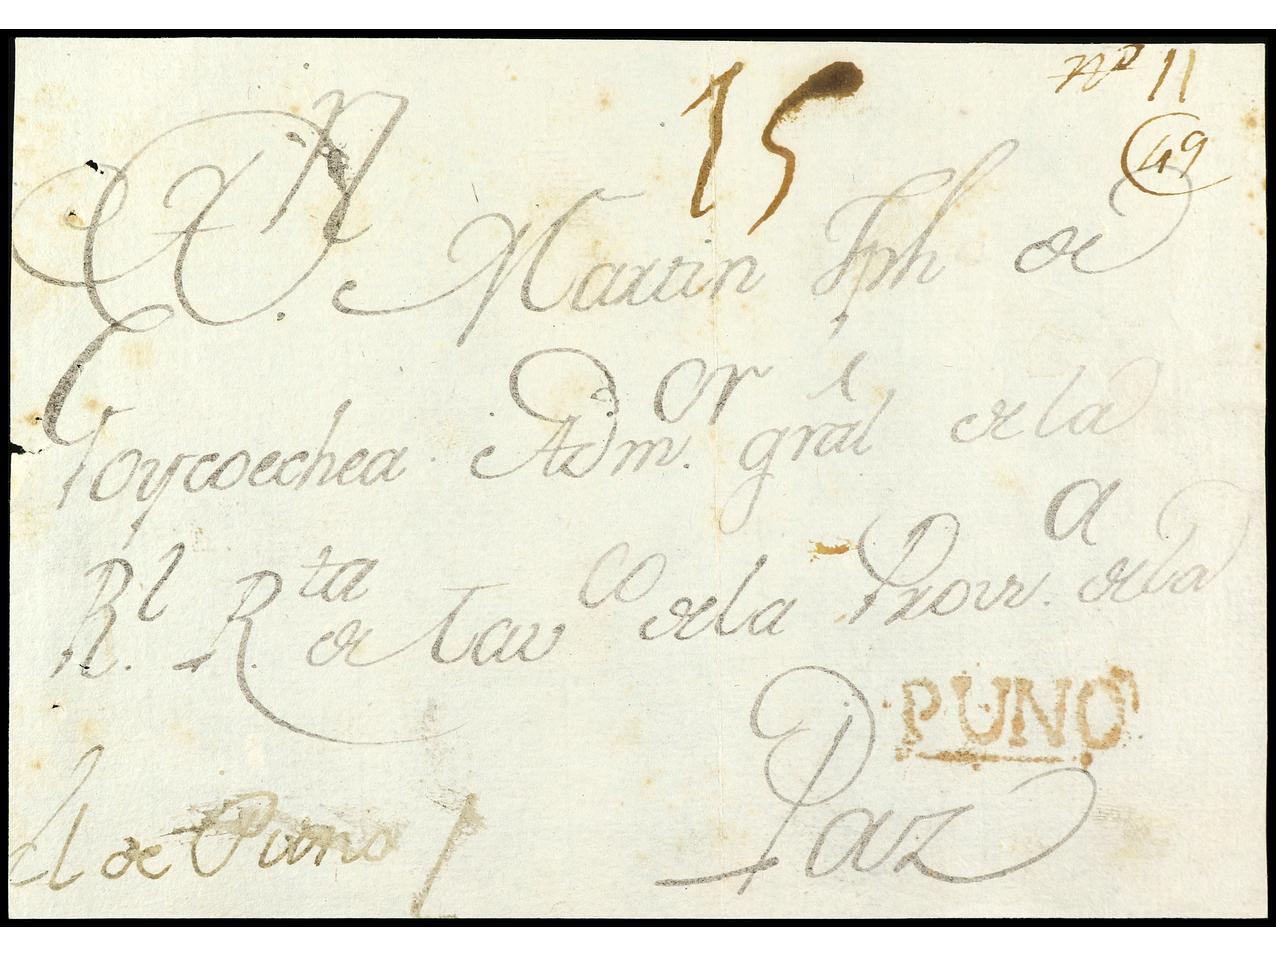 nº 11
15
49
A. Dn. Martin Jph de
Goycoechea Admor. gral de la
Rl. Rta de Tavco de la Prova. de la
Paz
PUNO
de Puno